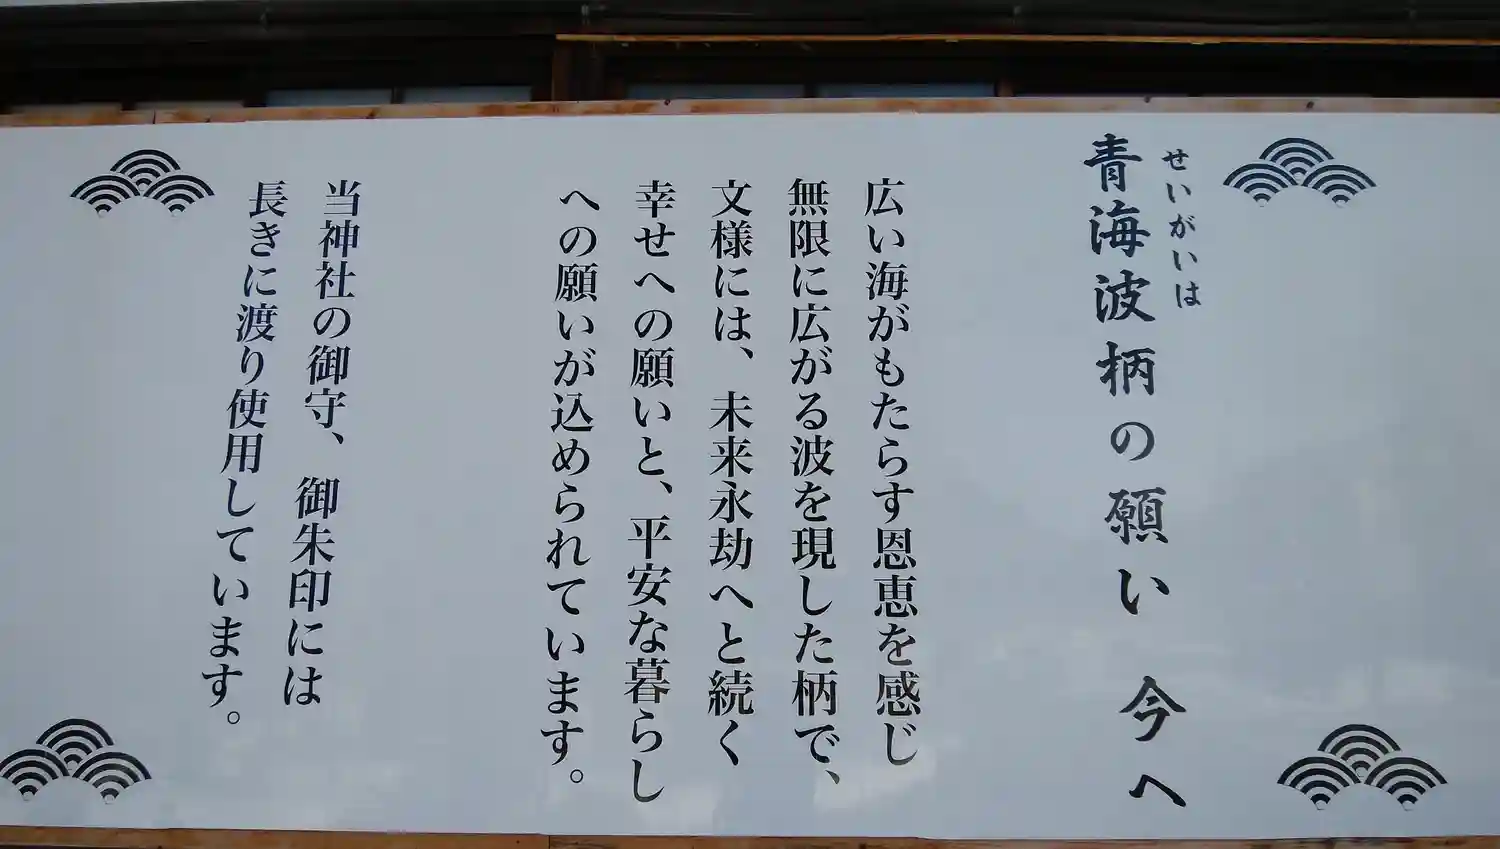 せいがいは
青海波柄の願い 今へ
広い海がもたらす恩恵を感じ
無限に広がる波を現した柄で、
文様には、未来永劫へと続く
幸せへの願いと、平安な暮らし
への願いが込められています。
当神社の御守、御朱印には
長きに渡り使用しています。